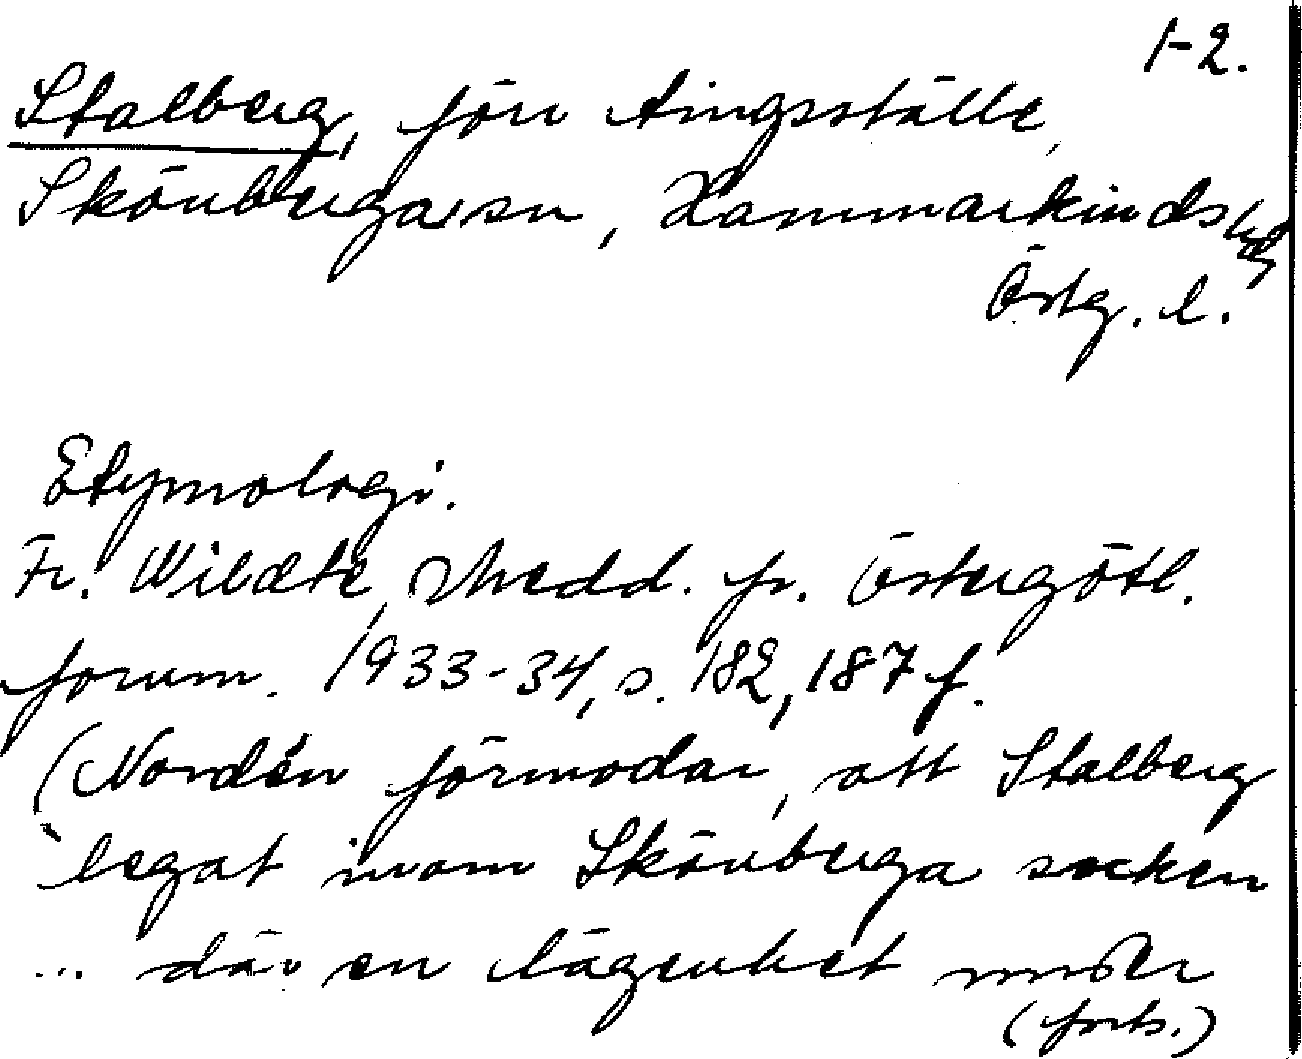 1-2.
Stalberg, förr tingsställe,
Skönberga sn, Hammarkinds hd,
Östg. l.
Etymologi.
Fr. Wildte, Medd. fr. Östergötl.
fornm. 1933-34, s. 182, 187 f.
(Nordén förmodar, att Stalberg
legat inom Skönberga socken
... där en lägenhet under
(forts.)